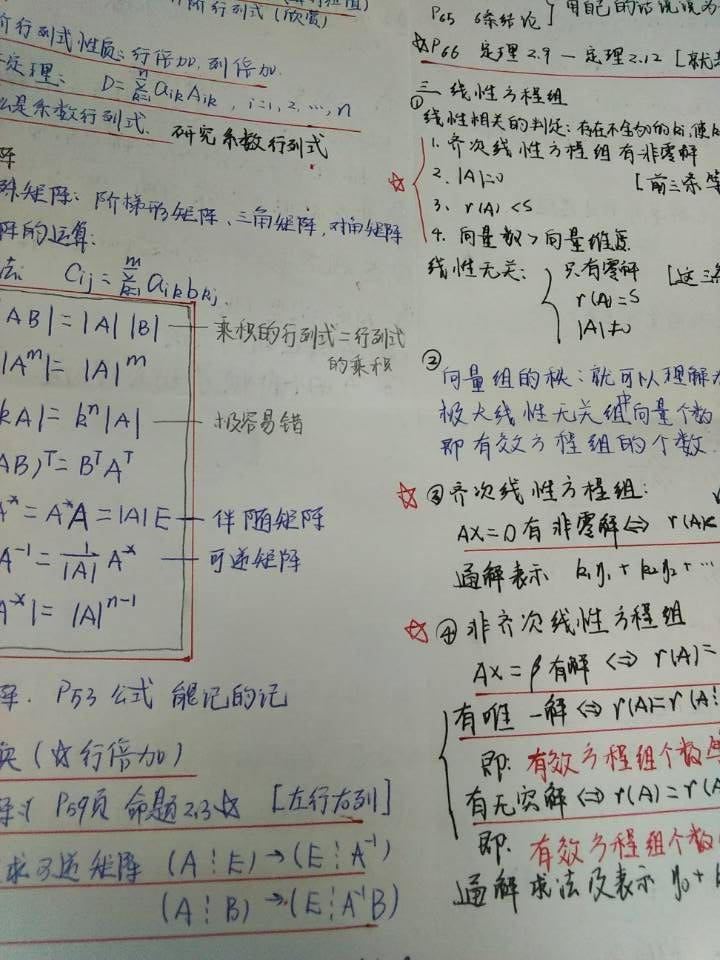 阶行列式(欣赏)
阶行列式性质:行倍加,列倍加.
定理: D=∑aikAik, i=1,2,…,n
么是系数行列式. 研究系数行列式
阵
殊矩阵:阶梯形矩阵、三角矩阵,对角矩阵
阵的运算:
法: Cij=∑aikbkj.
|AB|=|A||B| — 乘积的行列式=行列式
的乘积
|A^m|=|A|^m
kA|=k^n|A| — 极容易错
AB)^T=B^TA^T
A^*=A^*A=|A|E — 伴随矩阵
A^-1=1/|A| A^* — 可逆矩阵
A^*|=|A|^n-1
阵. P53公式 能记的记
(☆行倍加)
P59页 命题2.3☆ [左行右列]
求可逆矩阵 (A⋮E)→(E⋮A^-1)
(A⋮B)→(E⋮A^-1B)
P65 6条结论] 用自己的话说说为
☆P66 定理2.9—定理2.12 [就
三 线性方程组
①
线性相关的判定:存在不全为0的ki,使k
☆ 1. 齐次线性方程组有非零解
2. |A|=0 [前三条等
3. r(A)<S
4. 向量数>向量维数
线性无关: 只有零解 [这三条
r(A)=S
|A|≠0
②
向量组的秩:就可以理解为
极大线性无关组中向量个数
即有效方程组的个数.
☆③齐次线性方程组:
AX=0有非零解⇔ r(A)<
通解表示 k1η1+k2η2+…
☆④非齐次线性方程组
AX=β有解⇔ r(A)=
有唯一解⇔ r(A)=r(A⋮
即:有效方程组个数
有无穷解⇔ r(A)=r(A
即:有效方程组个数
通解求法及表示 η0+k